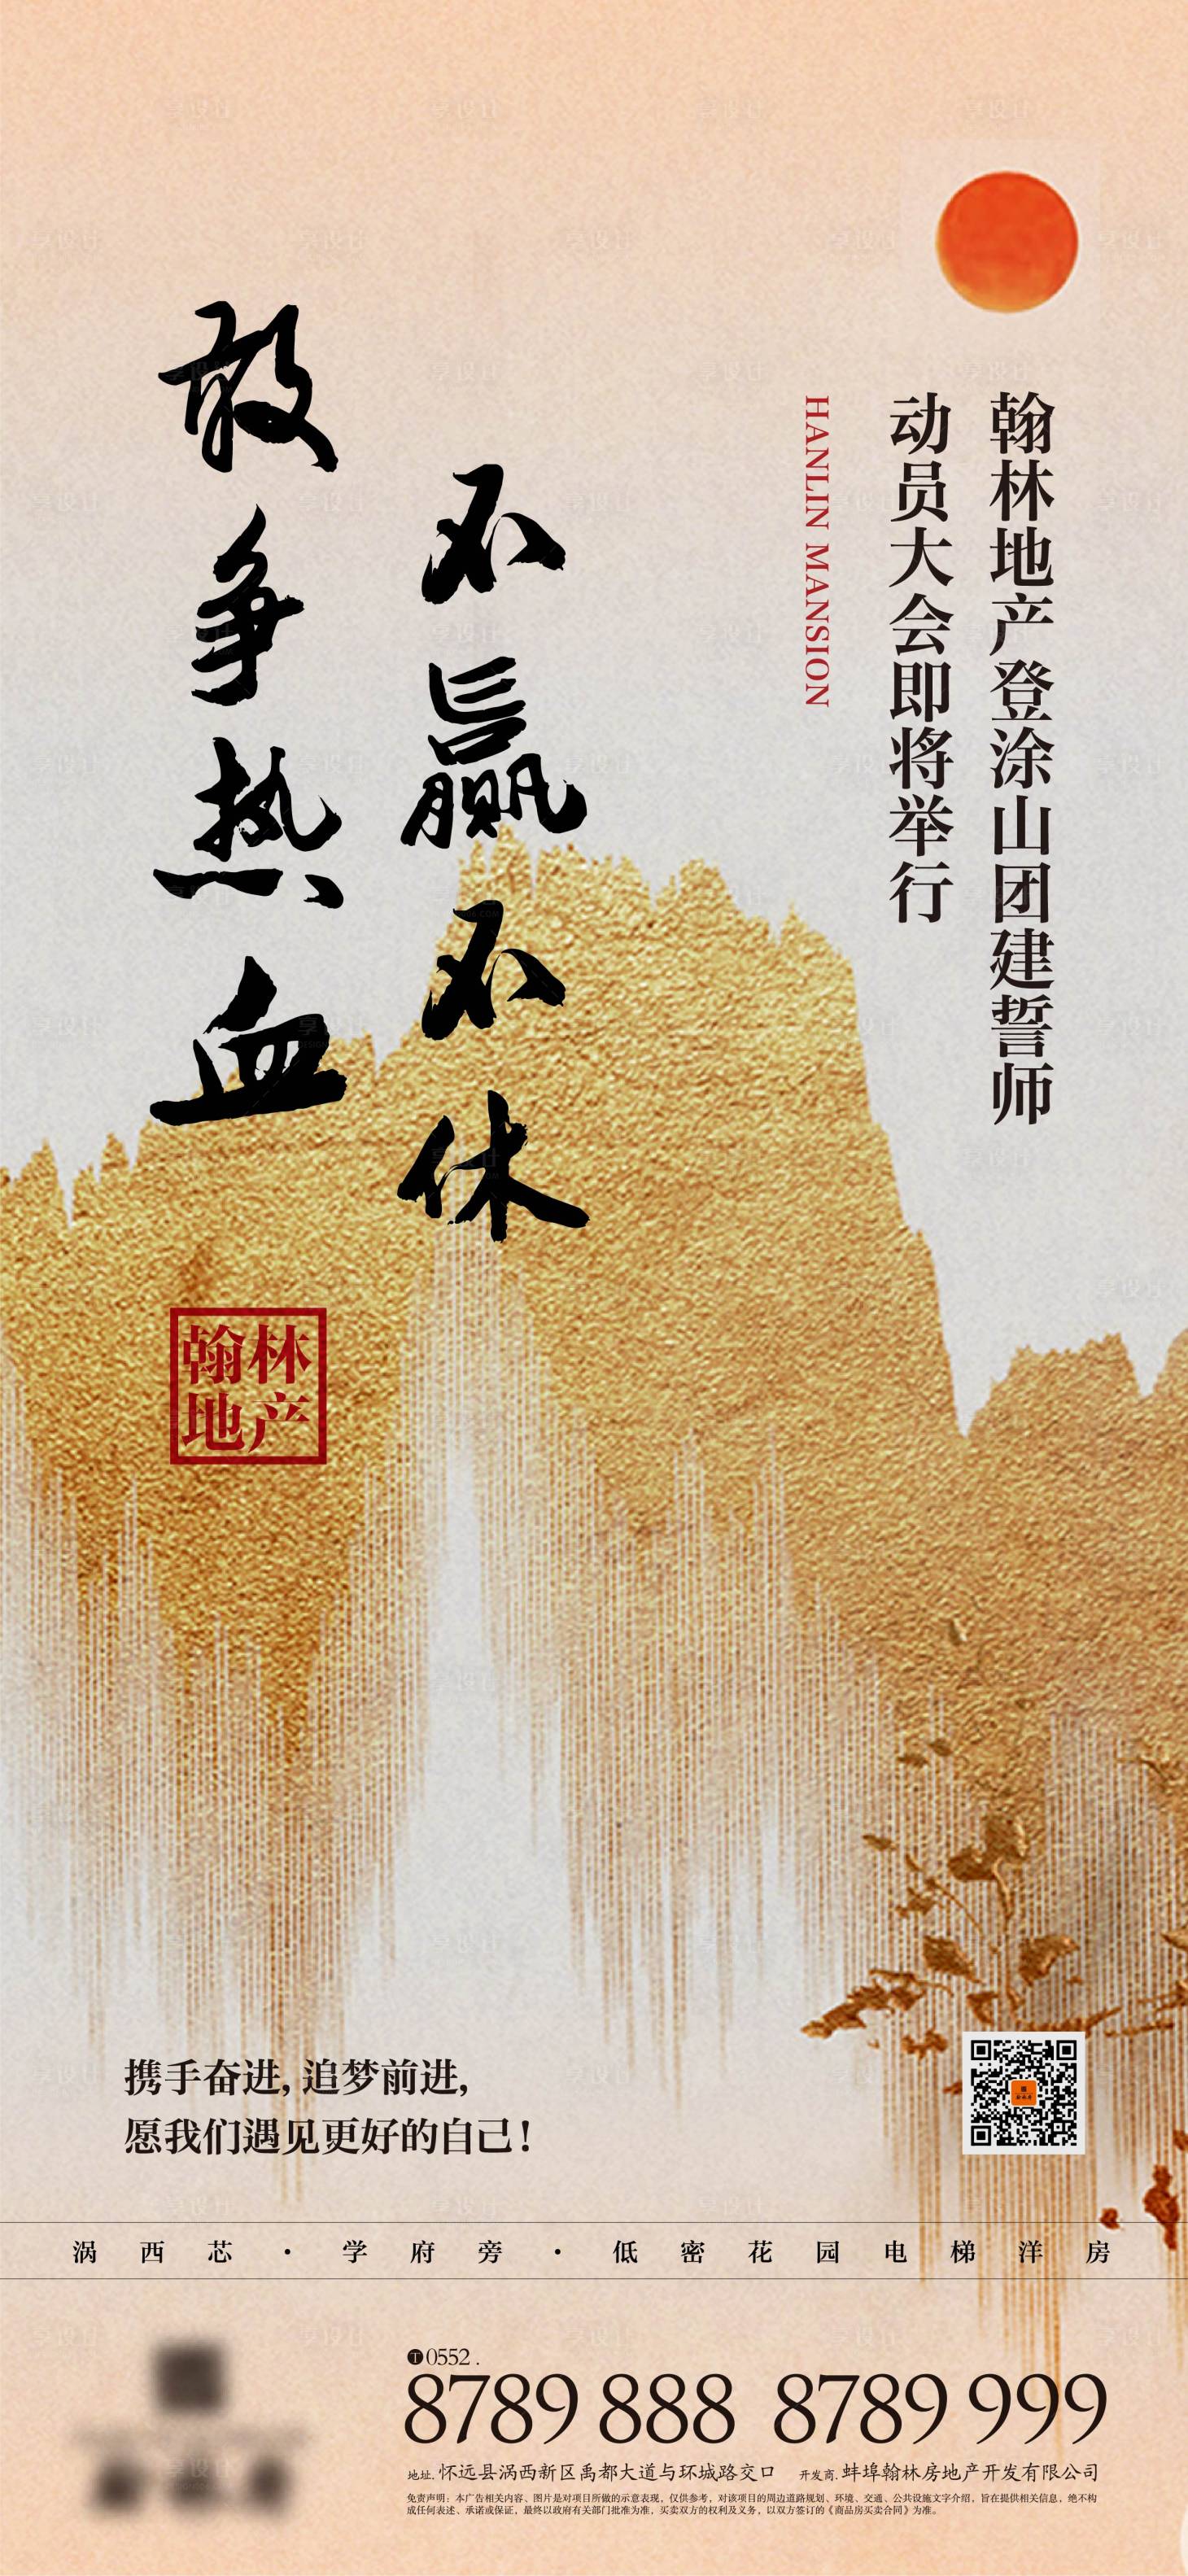 翰林地产登涂山团建誓师
动员大会即将举行
HANLIN MANSION
敢争热血
不赢不休
翰林
地产
携手奋进，追梦前进，
愿我们遇见更好的自己！
涡西芯·学府旁·低密花园电梯洋房
T 0552.
8789 888 8789 999
地址.怀远县涡西新区禹都大道与环城路交口 开发商.蚌埠翰林房地产开发有限公司
免责声明：本广告相关内容、图片是对项目所做的示意表现，仅供参考，对该项目的周边道路规划、环境、交通、公共设施文字介绍，旨在提供相关信息，绝不构
成任何表述、承诺或保证，最终以政府有关部门批准为准，买卖双方的权利及义务，以双方签订的《商品房买卖合同》为准。
享设计